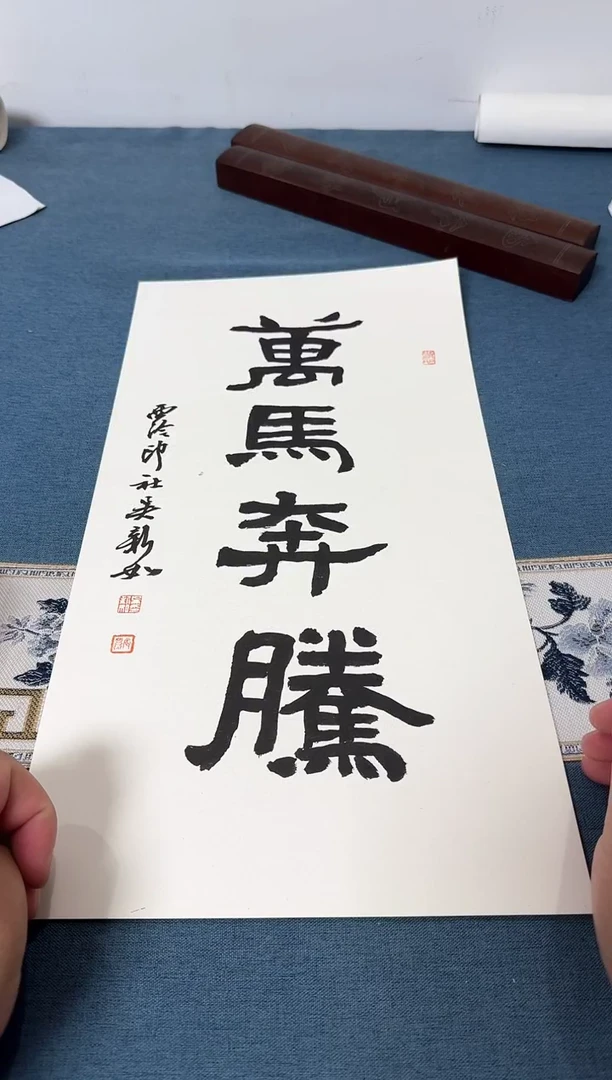 萬馬奔騰
西泠印社吳新如